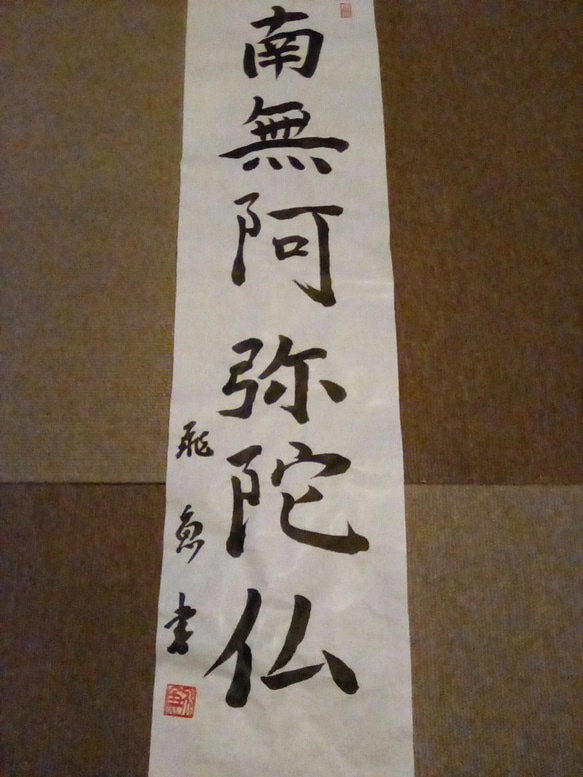 南無阿弥陀仏
飛魚書